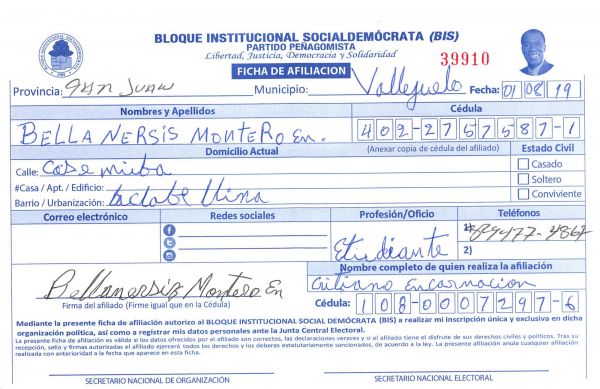 BLOQUE INSTITUCIONAL SOCIALDEMÓCRATA (BIS)
PARTIDO PEÑAGOMISTA
Libertad, Justicia, Democracia y Solidaridad
39910
FICHA DE AFILIACION
Provincia: San Juan Municipio: Vallejuelo Fecha: 01 08 19
Nombres y Apellidos Cédula
BELLA NERSIS MONTERO En. 402-2757587-1
Domicilio Actual (Anexar copia de cédula del afiliado) Estado Civil
Calle: Casado
#Casa / Apt. / Edificio: Soltero
Barrio / Urbanización: Conviviente
Correo electrónico Redes sociales Profesión/Oficio Teléfonos
1)
Etudiante 2)
Nombre completo de quien realiza la afiliación
Bellanersis Montero En Encarnacion
Firma del afiliado (Firme igual que en la Cédula) Cédula: 108-0007297-6
Mediante la presente ficha de afiliación autorizo al BLOQUE INSTITUCIONAL SOCIAL DEMÓCRATA (BIS) a realizar mi inscripción única y exclusiva en dicha
organización política, así como a registrar mis datos personales ante la Junta Central Electoral.
La presente ficha de afiliación es válida si los datos ofrecidos por el afiliado son correctos, las declaraciones veraces y si el afiliado tiene el disfrute de sus derechos civiles y políticos. Tras su
recepción, sello y firmas autorizadas el afiliado ejercerá todos los derechos y los deberes estatutariamente sancionados, de acuerdo a la ley. La presente afiliación anula cualquier afiliación
realizada con anterioridad a la fecha que aparece en esta ficha.
SECRETARIO NACIONAL DE ORGANIZACIÓN SECRETARIO NACIONAL ELECTORAL